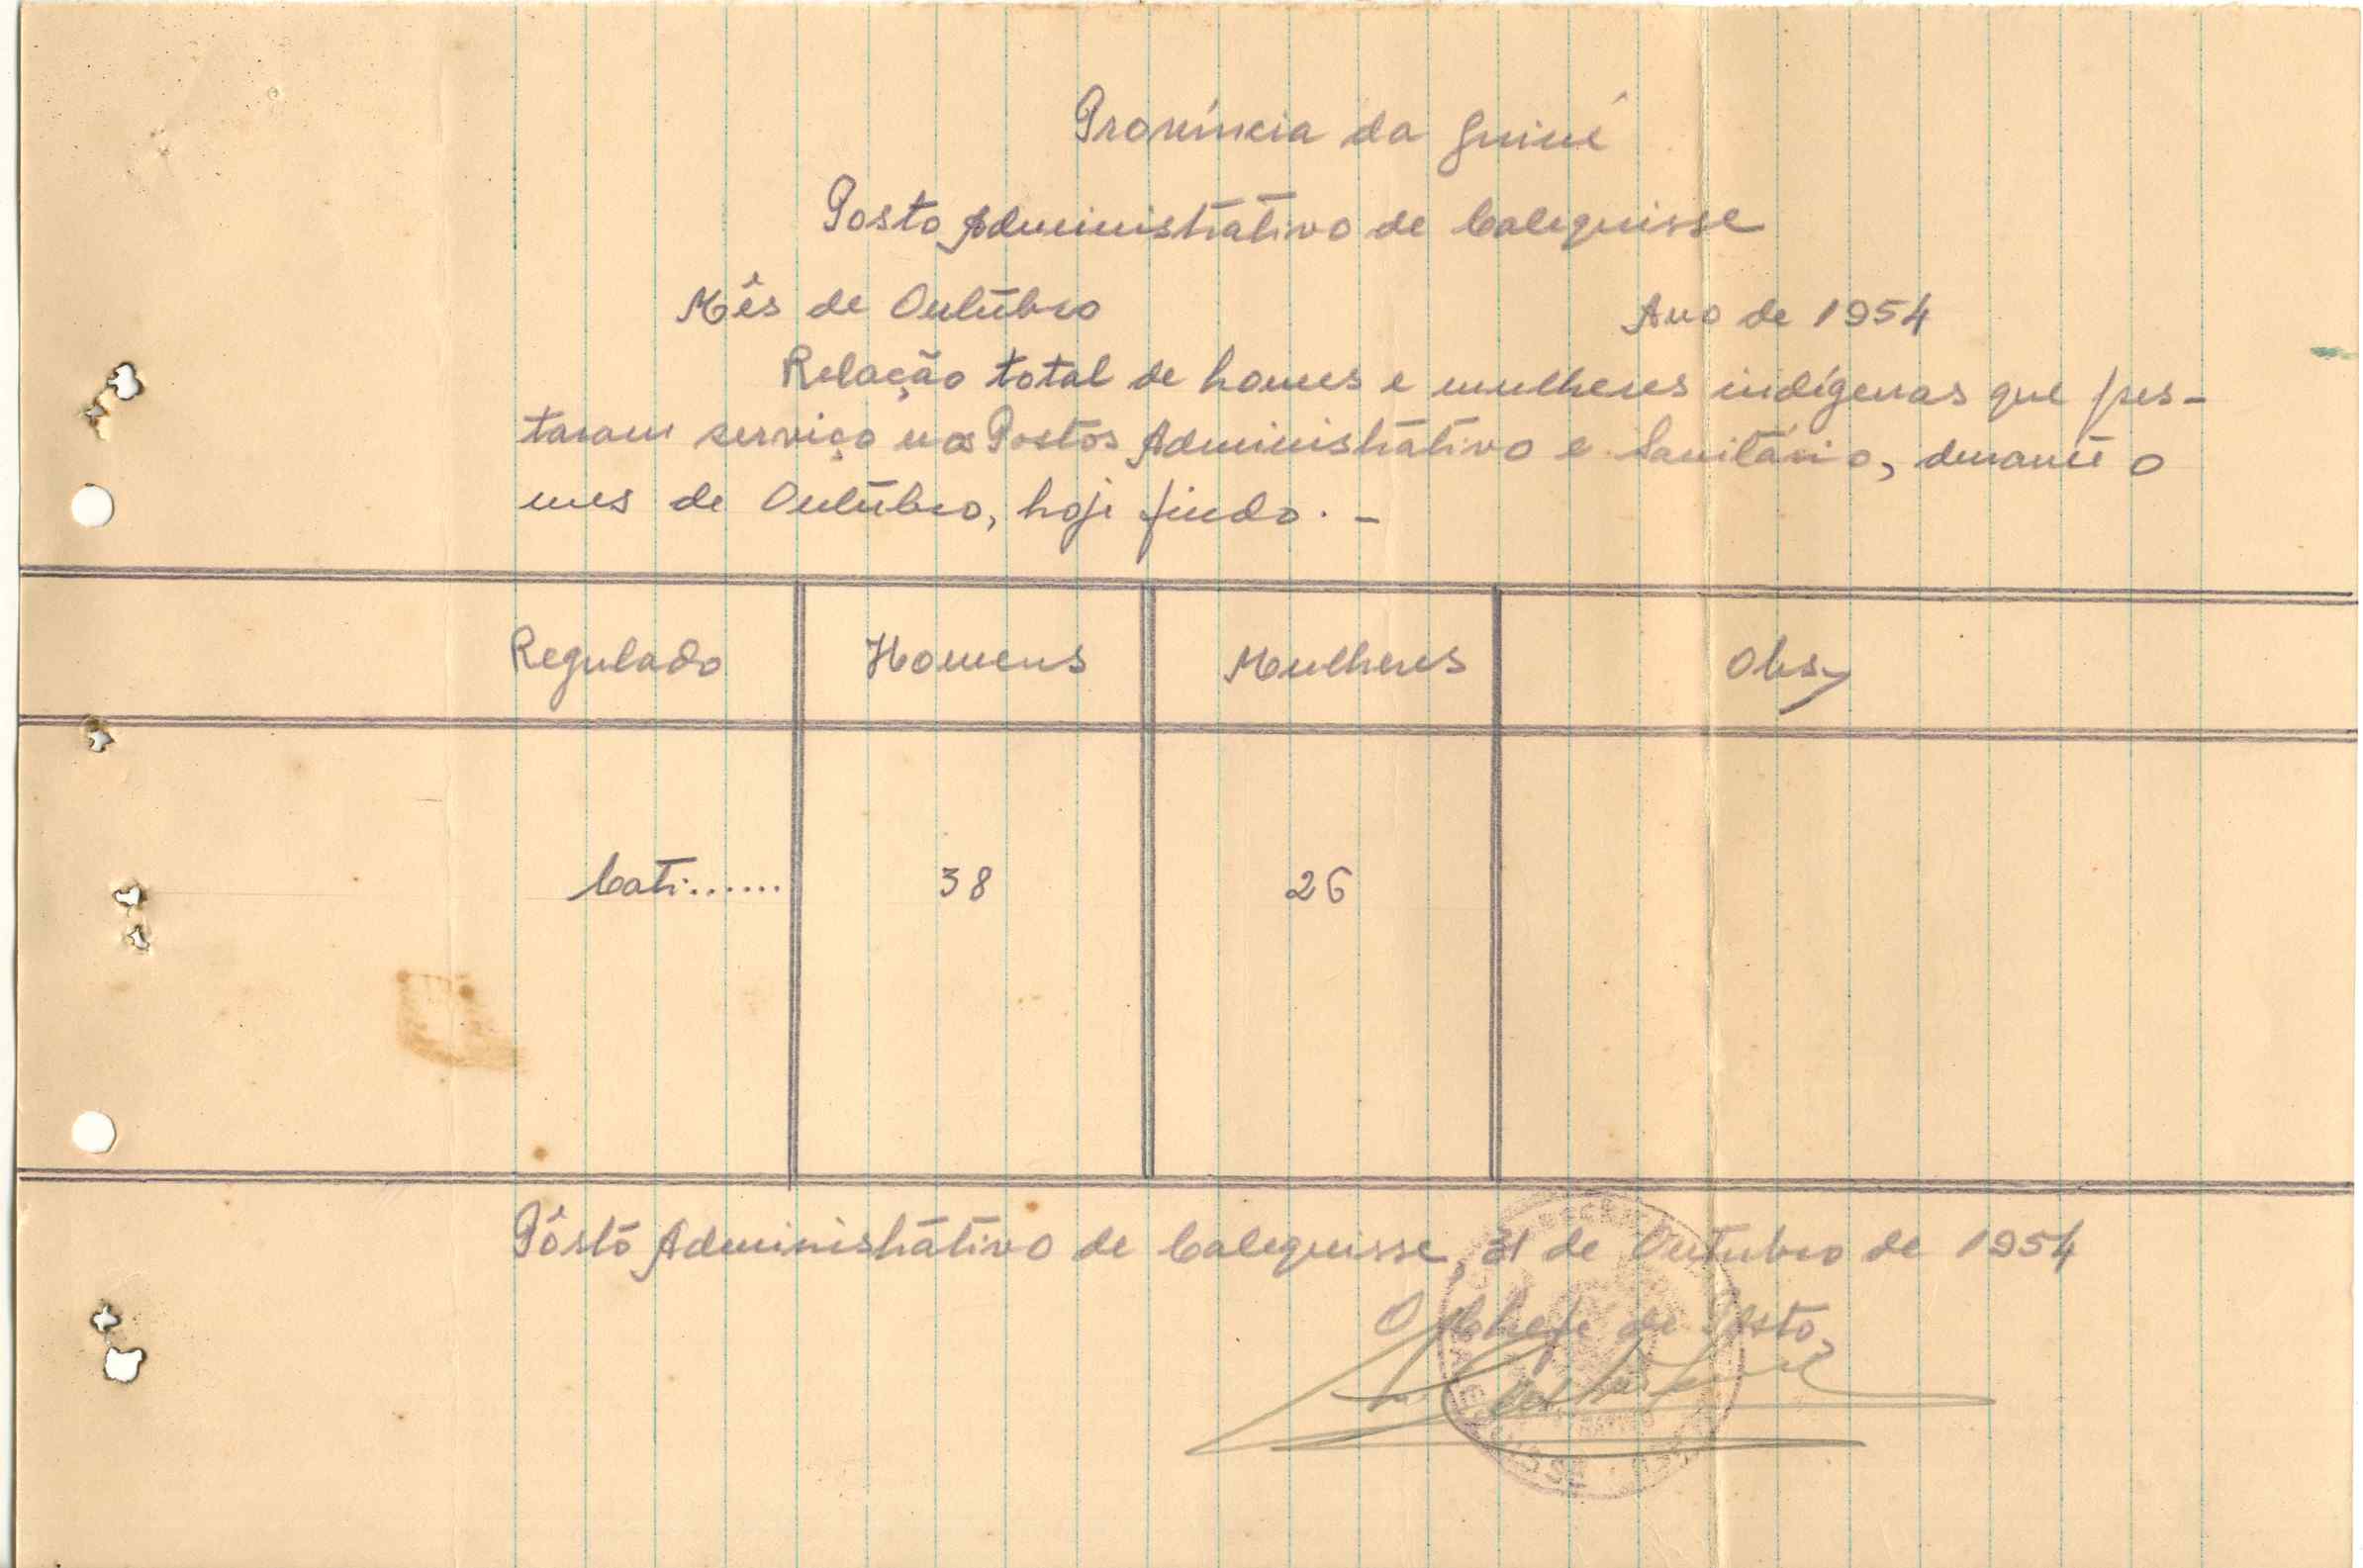 Província da Guiné
Posto Administrativo de Calequisse
Mês de Outubro Ano de 1954
Relação total de homes e mulheres indígenas que pres-
taram serviço nos Postos Administrativo e Sanitário, durante o
mes de Outubro, hoje findo. -
Regulado Homens Mulheres Obs.
Cati....... 38 26
Pôsto Administrativo de Calequisse, 31 de Outubro de 1954
O Chefe de Posto,